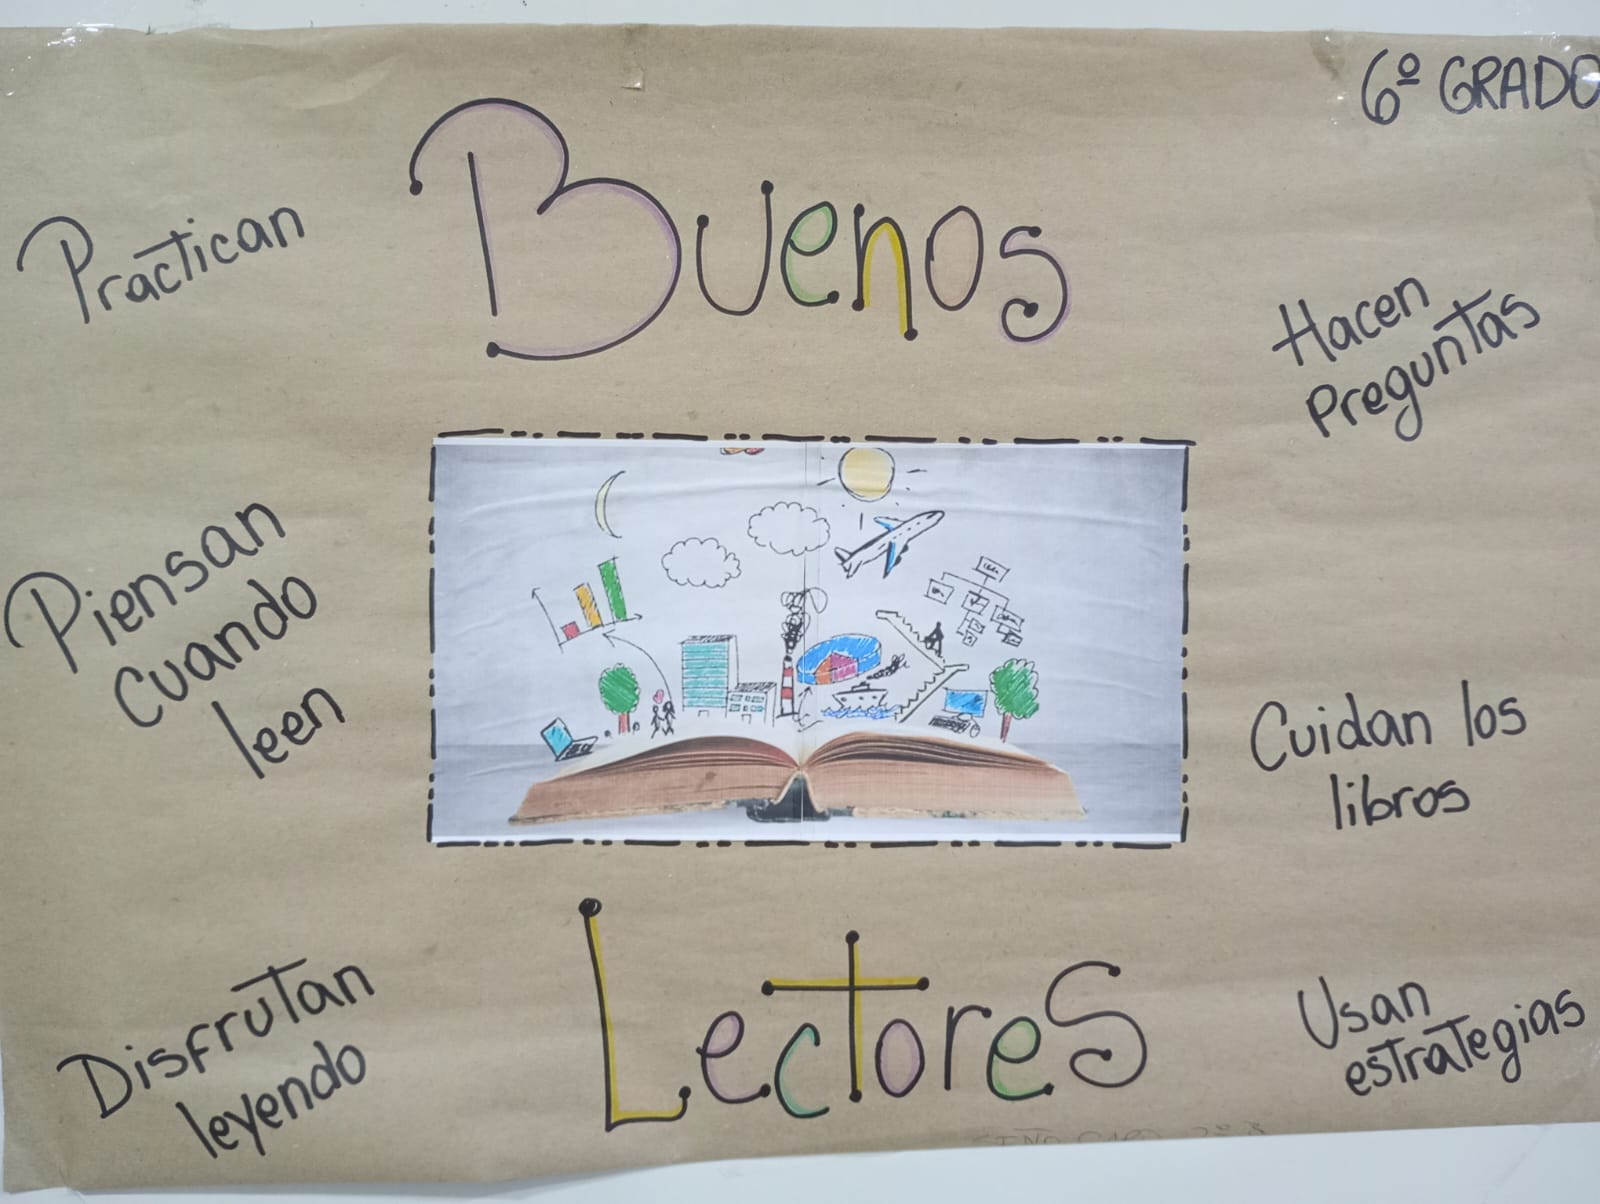 6º GRADO
Buenos
Practican
Hacen
preguntas
Piensan
cuando
leen
Cuidan los
libros
Disfrutan
leyendo
Lectores
Usan
estrategias